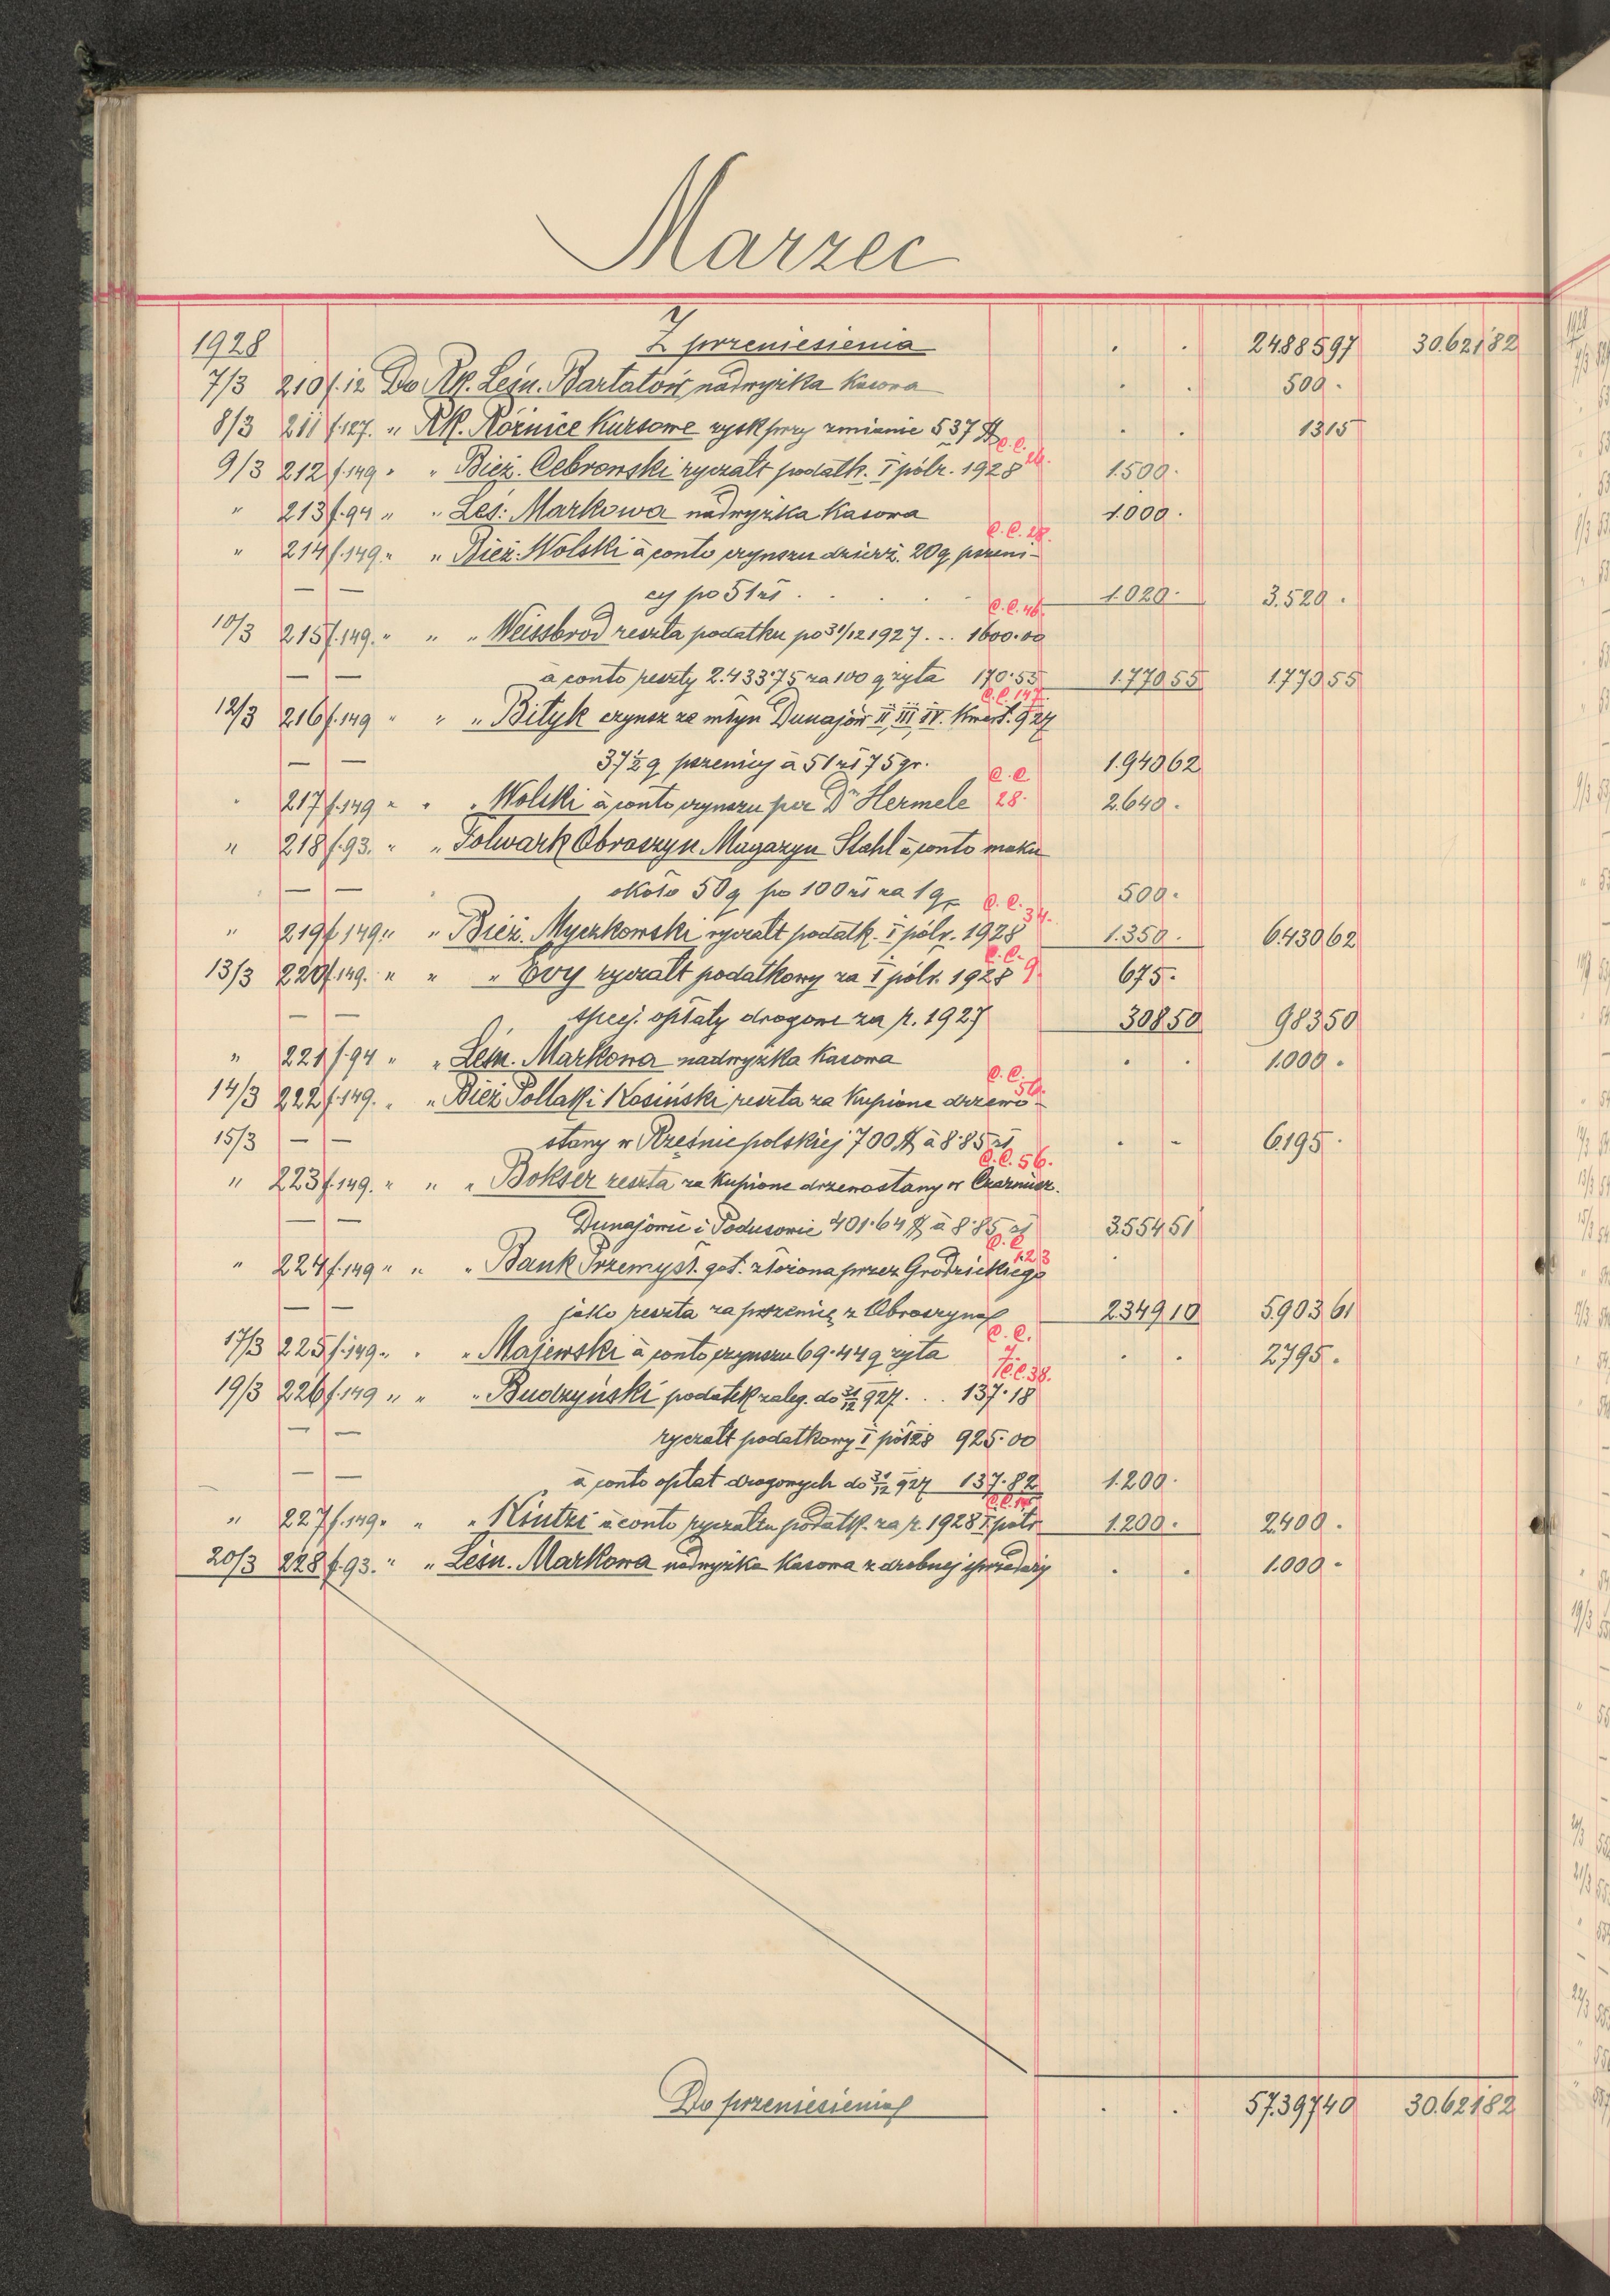 Marzec
1928 Z przeniesienia . . 24.885 97 30.621 82
7/3 210 f.12 Do Rk. Leśn. Bartatów nadwyżka kasowa . . 500 .
8/3 211 f.127. " Rk. Różnice Kursowe zysk przy zmianie 537 $ . . 13 15
9/3 212 f.149 " " Bież. Cebrowski ryczałt podatk. I półr. 1928 C.C. 26. 1.500 .
" 213 f.94 " " Leś: Markowa nadwyżka kasowa 1.000 .
" 214 f.149 " " Bież. Wolski à conto czynszu dzierż. 20 q pszeni- C.C. 28.
— — cy po 51 zł . . . . 1.020 . 3.520 .
10/3 215 f.149. " " " Weissbrod reszta podatku po 31/12 1927 . .. 1600.00 C.C. 46.
— — à conto reszty 2.433.75 za 100 q żyta 170.55 1.770 55 1.770 55
12/3 216 f.149 " " " Bityk czynsz za młyn Dunajów II, III, IV. kwart. 927 C.C. 147.
— — 37 1/2 q pszenicy à 51 zł 75 gr. 1.940 62
" 217 f.149 " " " Wolski à conto czynszu per Dr Hermele C.C 28. 2.640 .
" 218 f.93. " " Folwark Obroszyn Magazyn Stahl à conto maku
— — około 50 q po 100 zł za 1 q 500 .
" 219 f.149 " " Bież. Myczkowski ryczałt podatk. I półr. 1928 C.C. 34. 1.350 . 6.430 62
13/3 220 f.149. " " " Evy ryczałt podatkowy za I półr. 1928 C.C. 9. 675 .
— — specj. opłaty drogowe za r. 1927 308 50 983 50
" 221 f.94 " " Leśn. Markowa nadwyżka kasowa . . 1.000 .
14/3 222 f.149. " " Bież Pollak i Kosiński reszta za kupione drzewo- C.C.
15/3 — — stany w Rzęśnie polskiej 700 $ à 8.85 zł . - 6.195 .
" 223 f.149. " " " Bokser reszta za kupione drzewostany w Czarnusz. C.C. 56.
— — Dunajowie i Podusowie 401.64 $ à 8.85 zł 3.554 51
" 224 f.149 " " " Bank Przemysł. got. złożona przez Grodzickiego C.C 123
— — jako reszta za pszenicę z Obroszyna 2.349 10 5.903 61
17/3 225 f.149 " " " Majewski à conto czynszu 69.44 q żyta C.C. 7. . . 2795 .
19/3 226 f.149 " " " Budzyński podatek zaleg. do 31/12 927 . . . 137.18 C.C. 38.
— — ryczałt podatkowy I pół 28 925.00
— — à conto opłat drogowych do 31/12 927 137.82 1.200 .
" 227 f.149 " " " Kintzi à conto ryczałtu podatk. za r. 1928 I półr C.C. 1.200 . 2.400 .
20/3 228 f.93. " " Leśn. Markowa nadwyżka kasowa z drobnej sprzedaży . . 1.000 .
Do przeniesienia . . 57.397 40 30.621 82